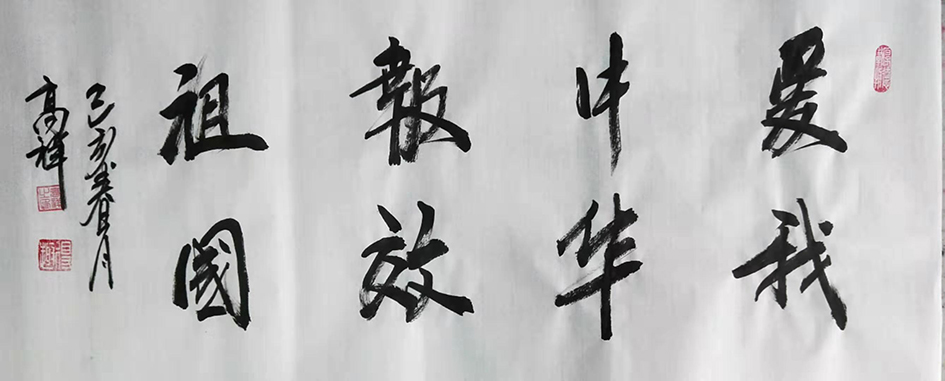 爱我
中华
報效
祖國
己亥春月
高祥